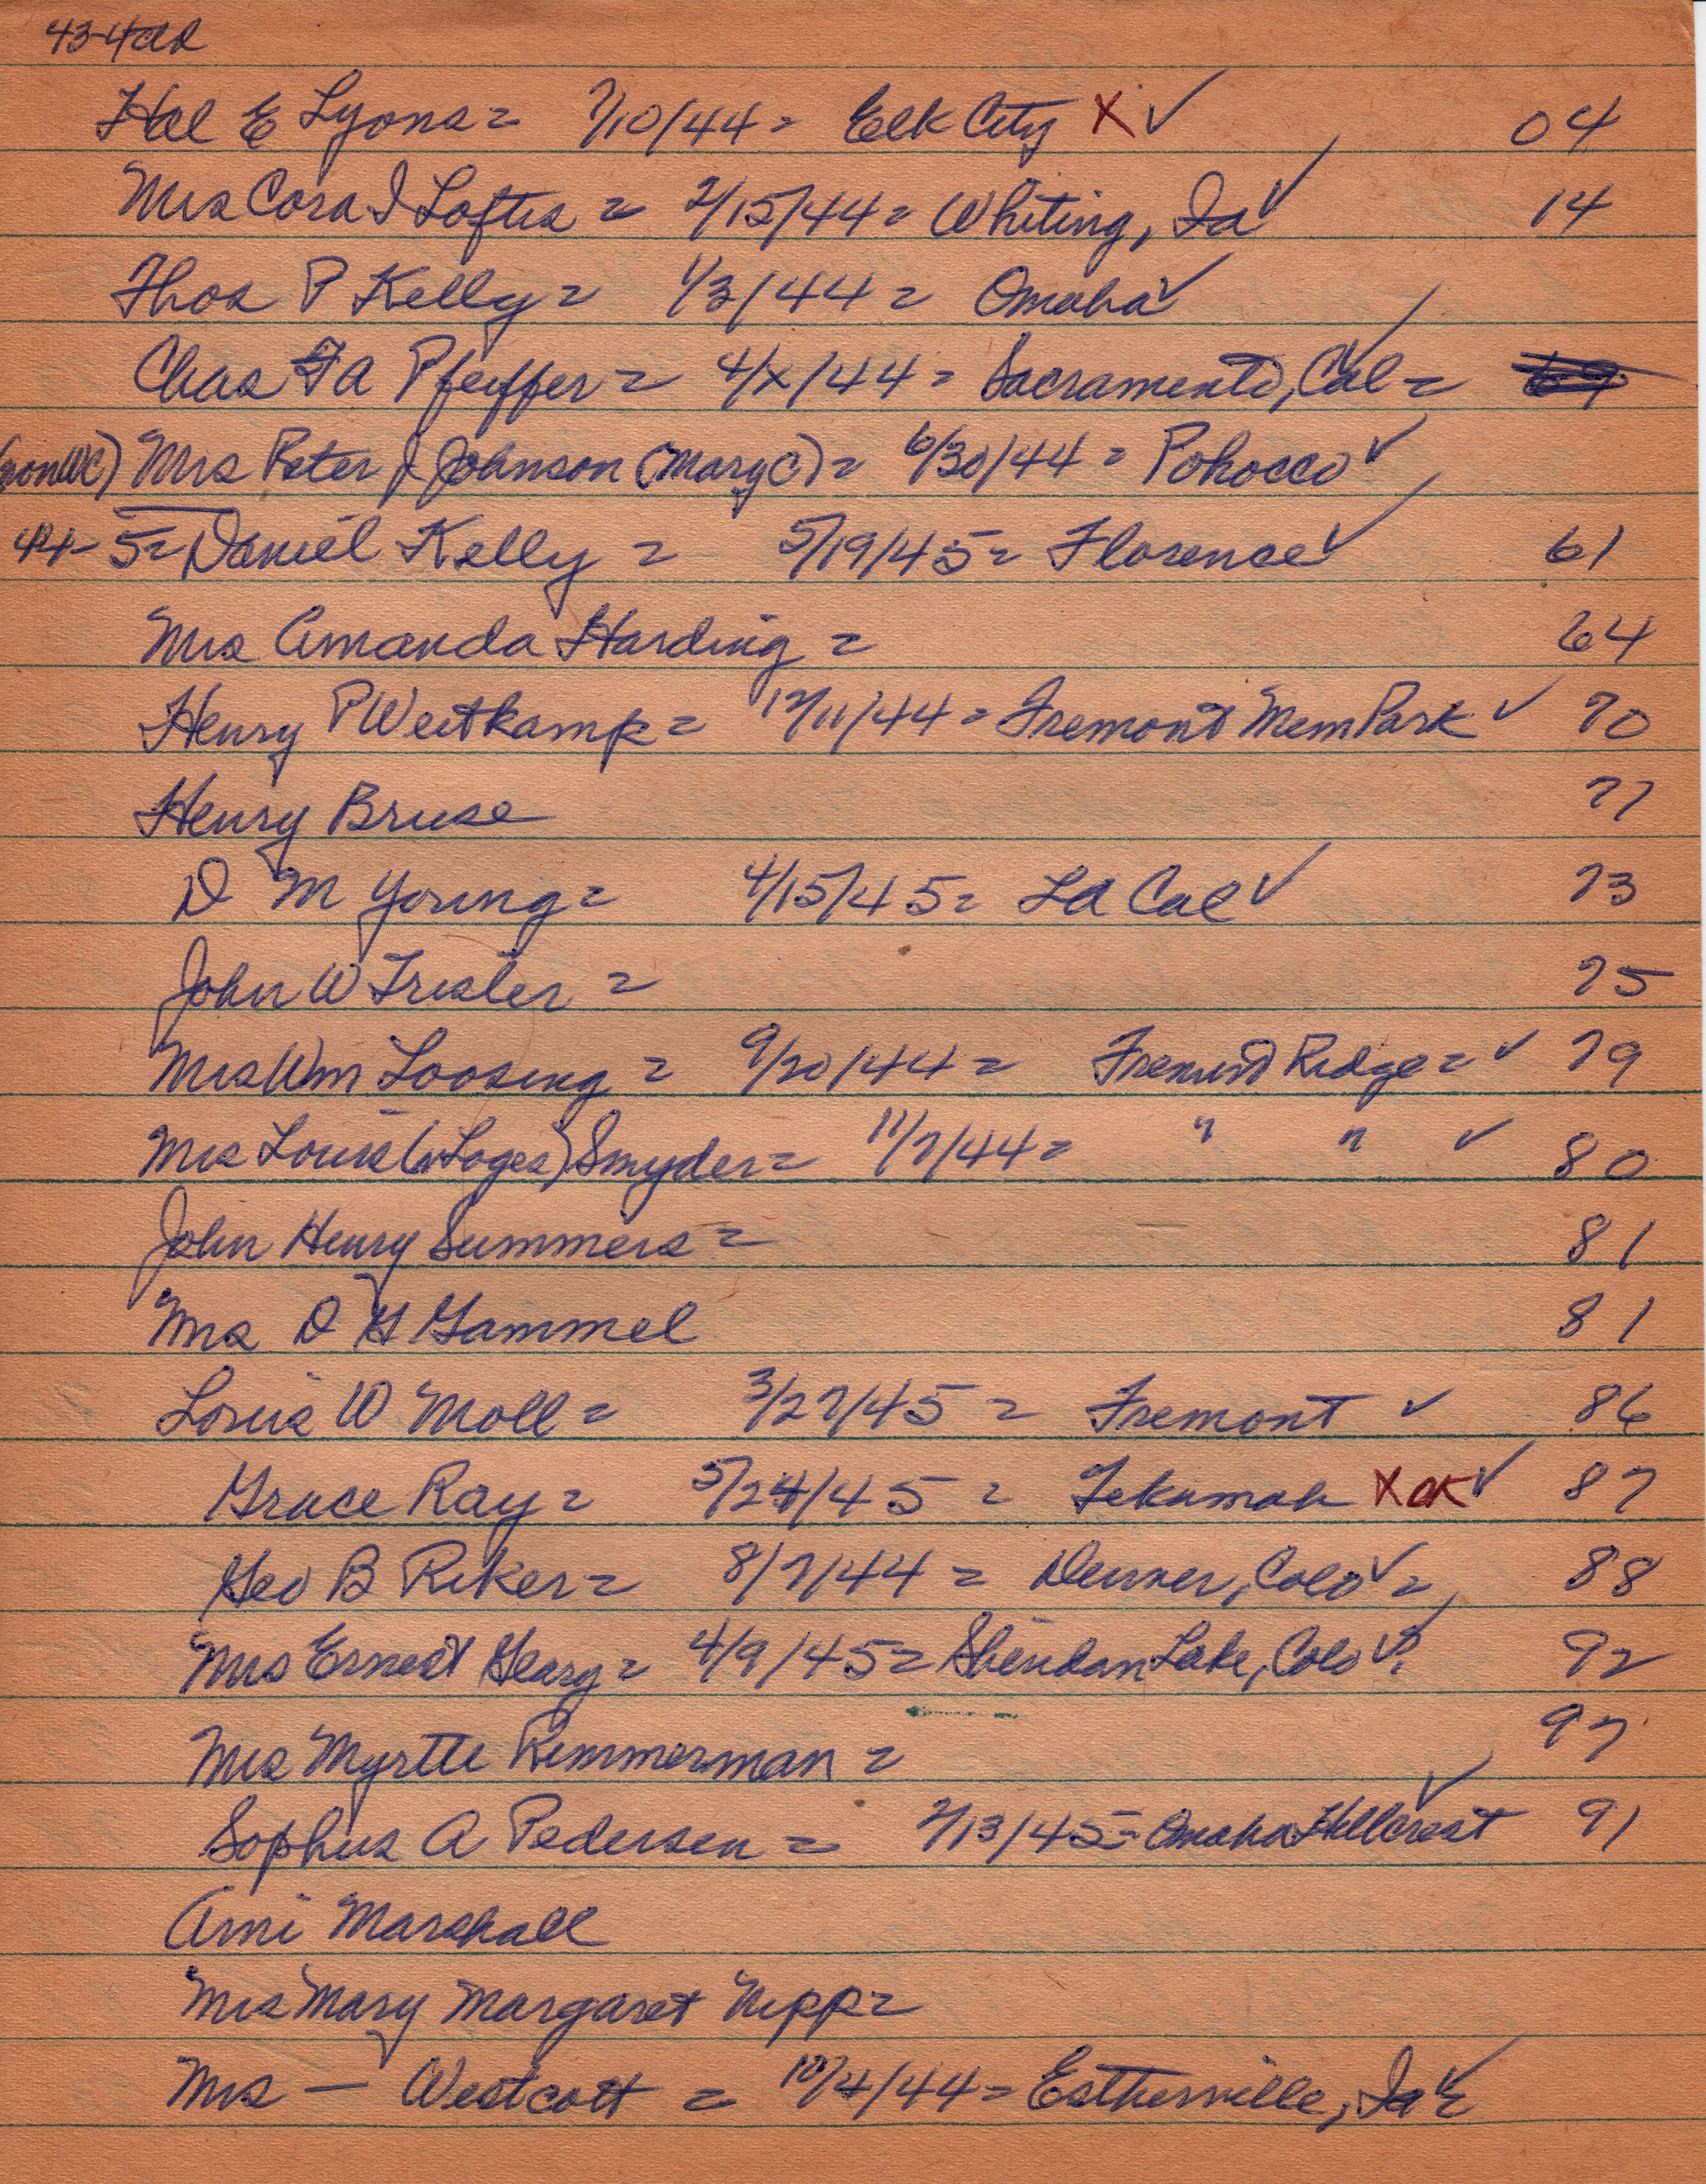 43-4
Hal E Lyons = 7/10/44 = Elk City X ✓ 04
Mrs Cora I Loftis = 2/15/44 = Whiting, Ia ✓ 14
Thos P Kelly = 1/3/44 = Omaha ✓
Chas A Pfeiffer = 4/x/44 = Sacramento, Cal = ✓
(nonWC) Mrs Peter J Johnson (Mary C) = 6/30/44 = Pohocco ✓
44-5 = Daniel Kelly = 5/19/45 = Florence ✓ 61
Mrs Amanda Harding = 64
Henry P Weitkamp = 12/11/44 = Fremont Mem Park ✓ 70
Henry Bruse 77
D M Young = 4/15/45 = LA Cal ✓ 73
John W Trisler = 75
Mrs Wm Loosing = 9/20/44 = Fremont Ridge = ✓ 79
Mrs Louis (n Loges) Snyder = 11/7/44 = " " ✓ 80
John Henry Summers = 81
Mrs D G Gammel 81
Louis W Moll = 3/27/45 = Fremont ✓ 86
Grace Ray = 5/24/45 = Tekamah X OK ✓ 87
Geo B Riker = 8/7/44 = Denver, Colo ✓ = 88
Mrs Ernest Geary = 4/9/45 = Sheridan Lake, Colo ✓ 92
Mrs Myrtle Rimmerman = 97
Sophus A Pedersen = 2/13/45 = Omaha Hillcrest ✓ 91
Ami Marshall
Mrs Mary Margaret Nipp =
Mrs — Westcott = 10/4/44 = Estherville, Ia ✓ =